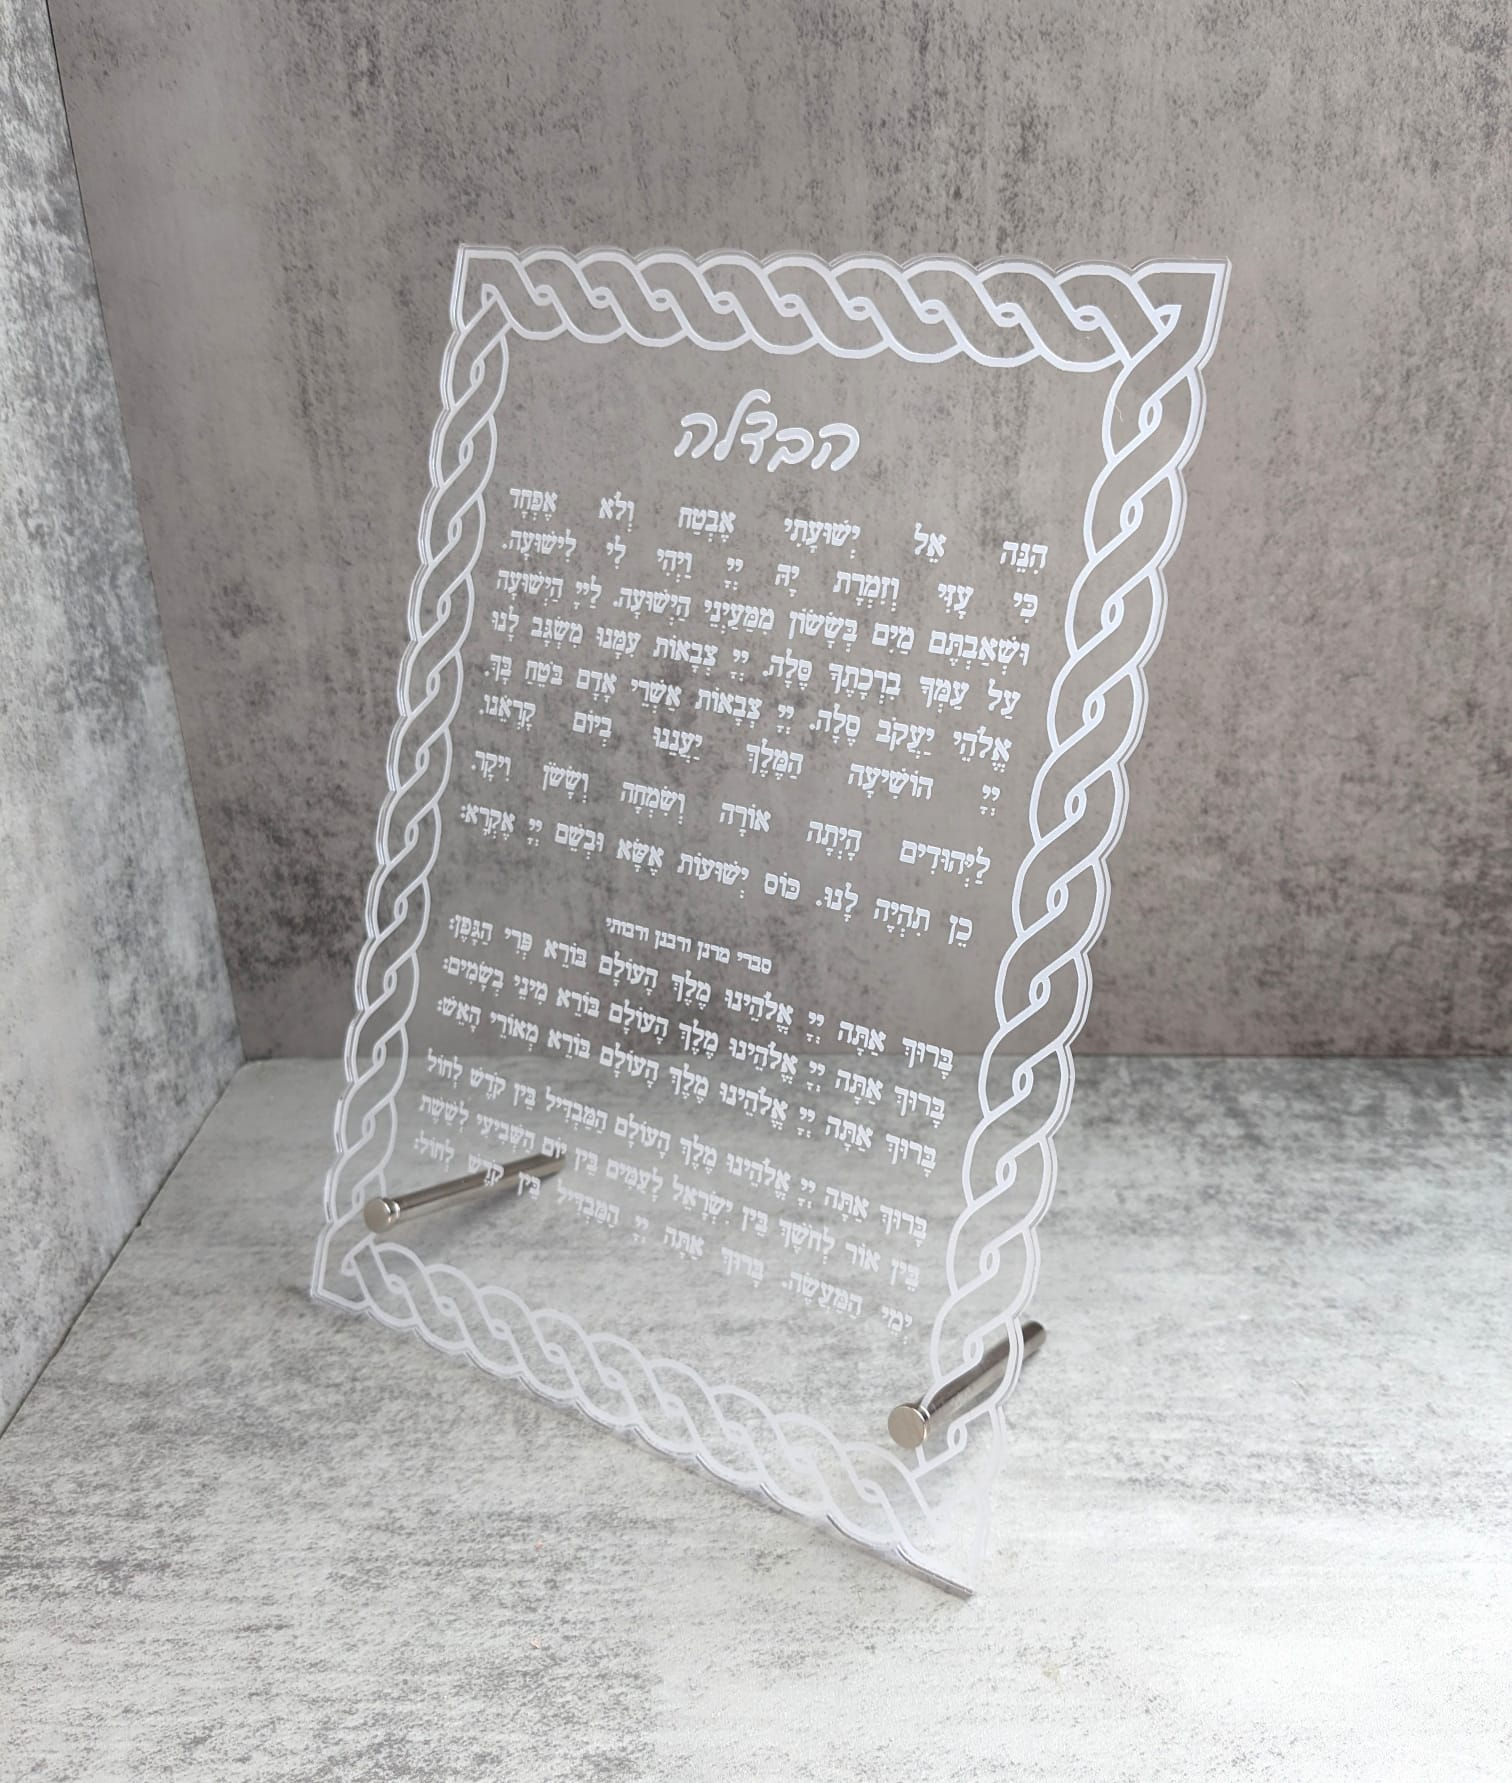 הבדלה
הִנֵּה אֵל יְשׁוּעָתִי אֶבְטַח וְלֹא אֶפְחָד
כִּי עָזִּי וְזִמְרָת יָהּ יְיָ וַיְהִי לִי לִישׁוּעָה.
וּשְׁאַבְתֶּם מַיִם בְּשָׂשׂוֹן מִמַּעַיְנֵי הַיְשׁוּעָה. לַייָ הַיְשׁוּעָה
עַל עַמְּךָ בִרְכָתֶךָ סֶּלָה. יְיָ צְבָאוֹת עִמָּנוּ מִשְׂגָּב לָנוּ
אֱלֹהֵי יַעֲקֹב סֶלָה. יְיָ צְבָאוֹת אַשְׁרֵי אָדָם בֹּטֵחַ בָּךְ.
יְיָ הוֹשִׁיעָה הַמֶּלֶךְ יַעֲנֵנוּ בְיוֹם קָרְאֵנוּ.
לַיְּהוּדִים הָיְתָה אוֹרָה וְשִׂמְחָה וְשָׂשֹׂן וִיקָר.
כֵּן תִּהְיֶה לָנוּ. כּוֹס יְשׁוּעוֹת אֶשָּׂא וּבְשֵׁם יְיָ אֶקְרָא:
סברי מרנן ורבנן ורבותי
בָּרוּךְ אַתָּה יְיָ אֱלֹהֵינוּ מֶלֶךְ הָעוֹלָם בּוֹרֵא פְּרִי הַגָּפֶן:
בָּרוּךְ אַתָּה יְיָ אֱלֹהֵינוּ מֶלֶךְ הָעוֹלָם בּוֹרֵא מִינֵי בְשָׂמִים:
בָּרוּךְ אַתָּה יְיָ אֱלֹהֵינוּ מֶלֶךְ הָעוֹלָם בּוֹרֵא מְאוֹרֵי הָאֵשׁ:
בָּרוּךְ אַתָּה יְיָ אֱלֹהֵינוּ מֶלֶךְ הָעוֹלָם הַמַּבְדִּיל בֵּין קֹדֶשׁ לְחוֹל
בֵּין אוֹר לְחֹשֶׁךְ בֵּין יִשְׂרָאֵל לָעַמִּים בֵּין יוֹם הַשְּׁבִיעִי לְשֵׁשֶׁת
יְמֵי הַמַּעֲשֶׂה. בָּרוּךְ אַתָּה יְיָ הַמַּבְדִּיל בֵּין קֹדֶשׁ לְחוֹל: